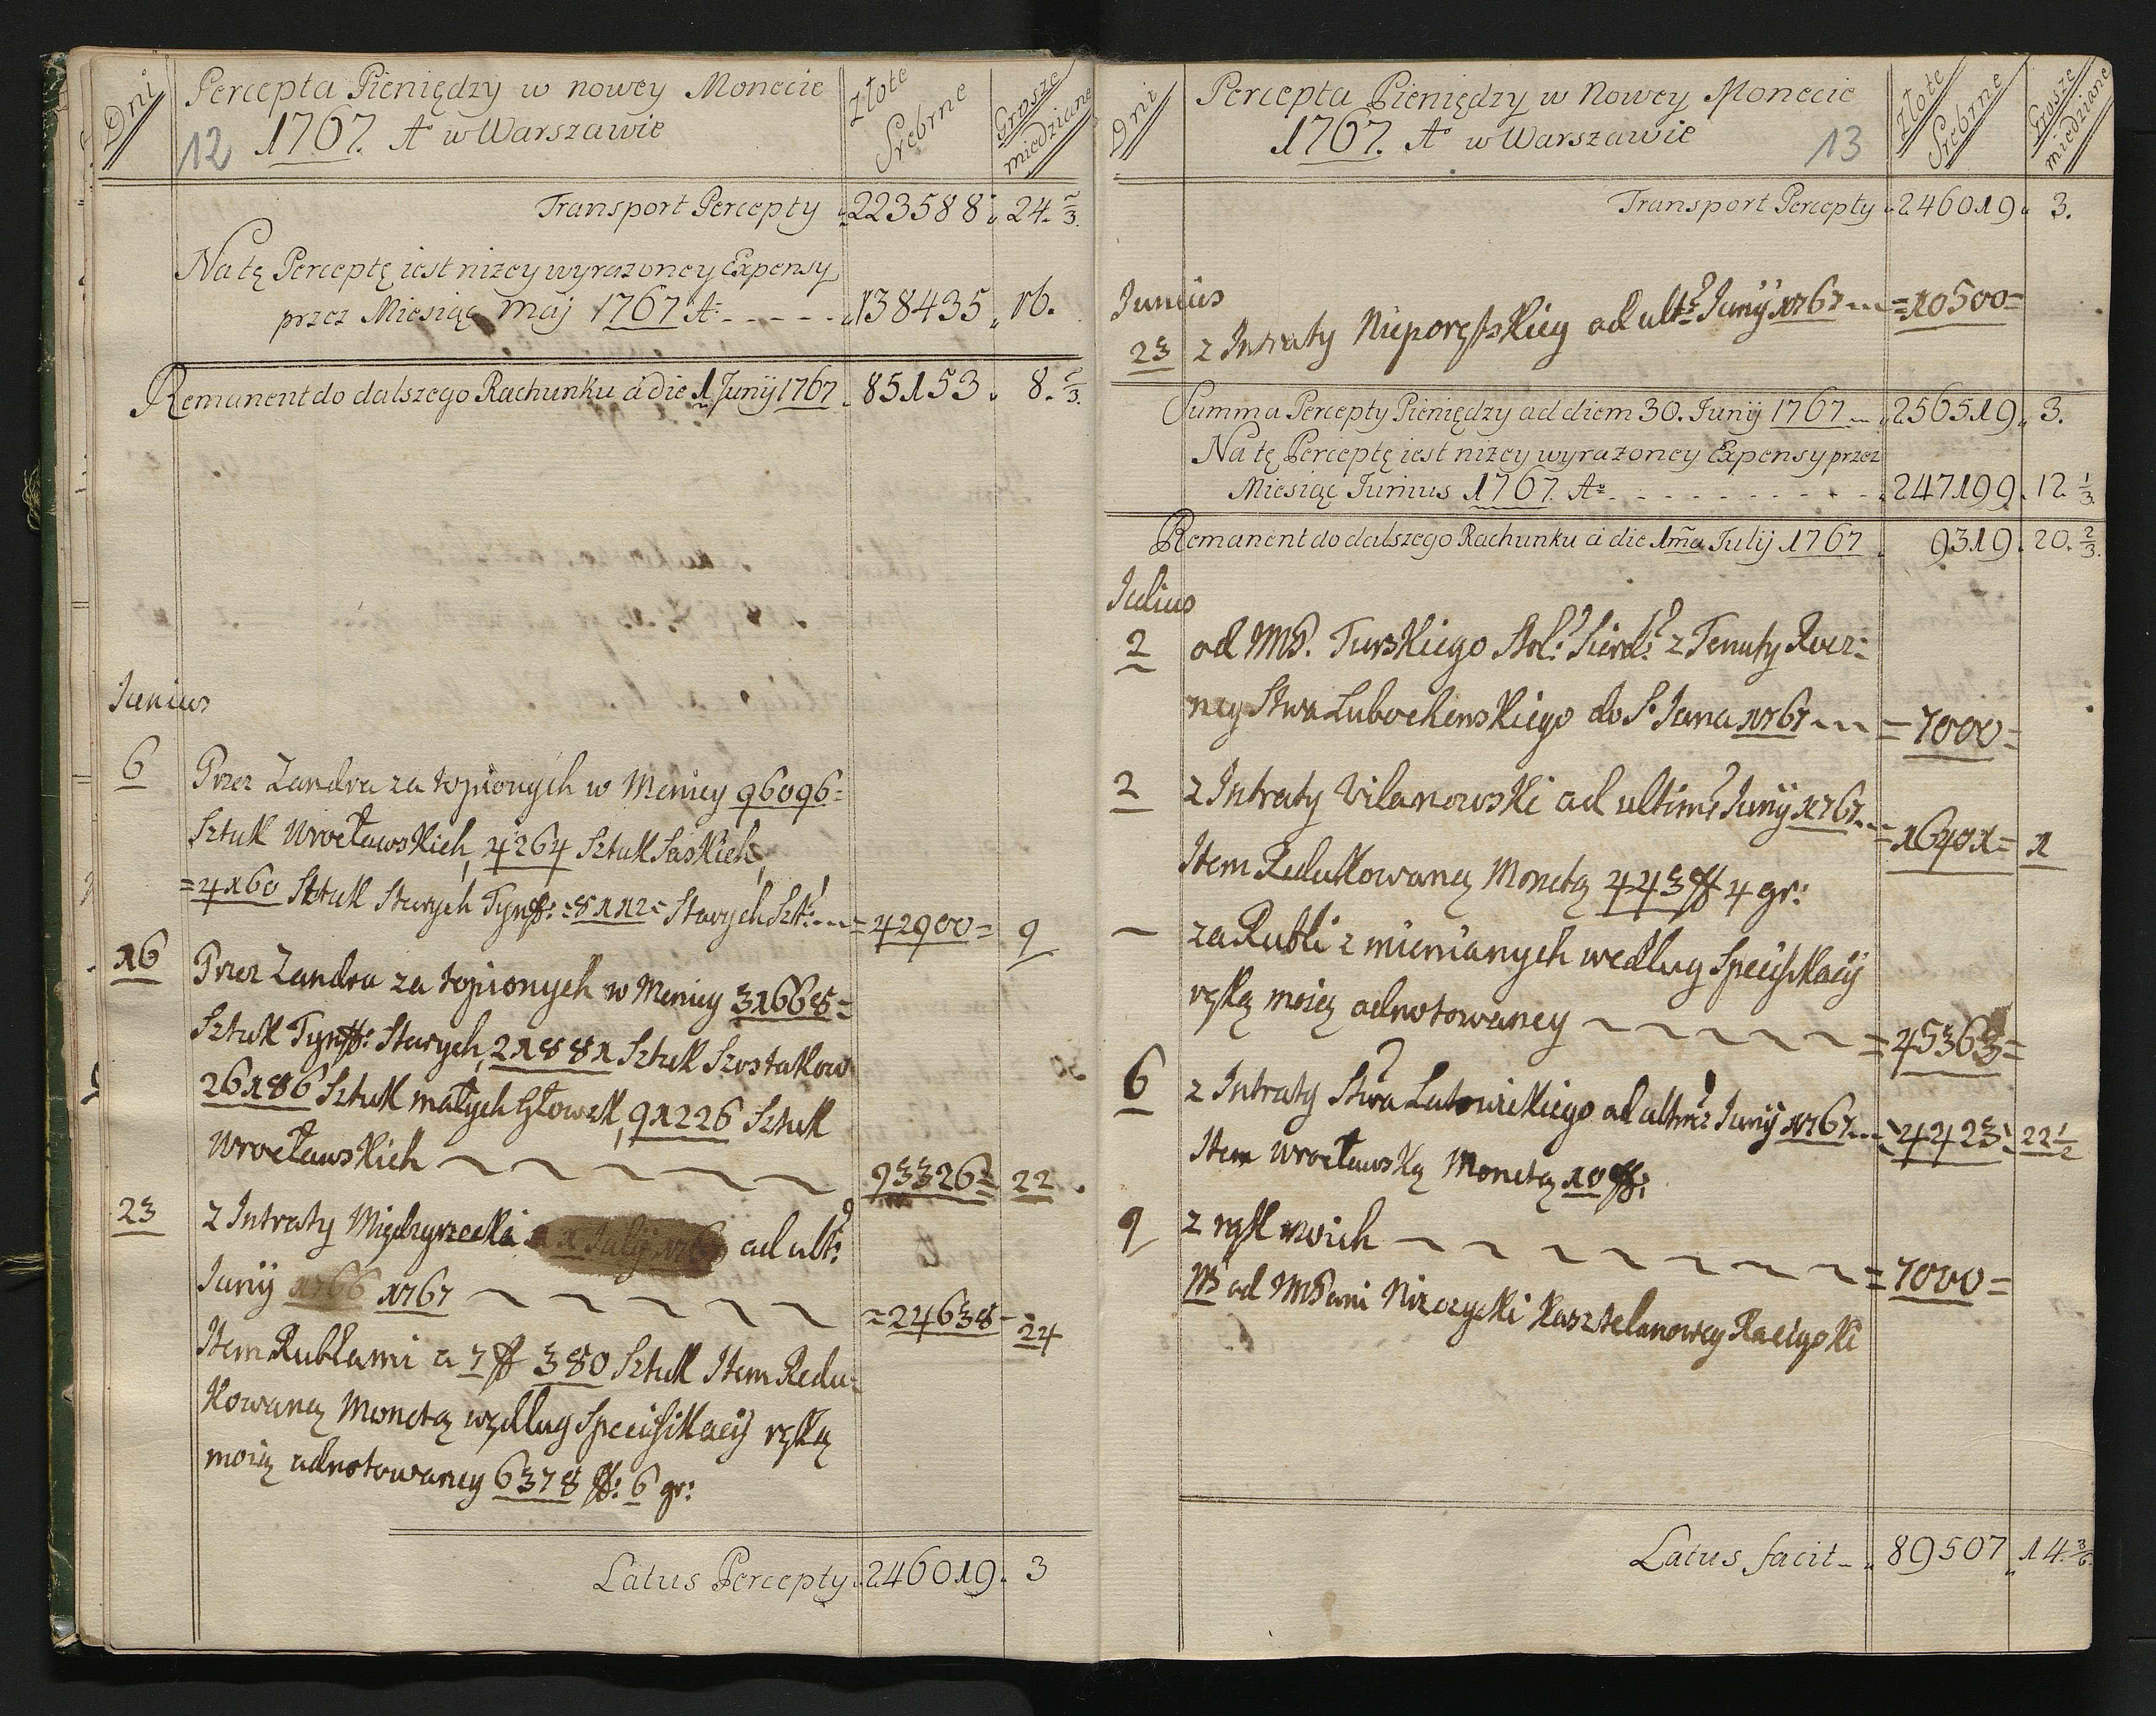 Dni
Percepta Pieniędzy w nowey Monecie
12 1767. Aº w Warszawie
Złote Srebrne
Grosze miedziane
Transport Percepty 223588 24. 2/3.
Na tę Perceptę iest niżey wyrażoney Expensy
przez Miesiąc Maj 1767 Aº - - - - - 138435 16.
Remanent do dalszego Rachunku à die 1 Junij 1767 85153 8. 2/3.
Junius
6 Przez Zandra za topionych w Mennicy 96096=
Sztuk Wrocławskich, 4264 Sztuk Saskich,
=4160 Sztuk Starych Tynff: =8112= Starych Szt: =42900= 9
16 Przez Zandra za topionych w Mennicy 31668=
Sztuk Tynff: Starych, 21881 Sztuk Szostakow
26186 Sztuk małych Głowek, 91226 Sztuk
Wrocławskich 93326= 22
23 z Intraty Międzyrzecki a 1 Julij 1766 ad ult:
Junij 1766 1767 =24638- 24
Item Rublami a 7 ff 380 Sztuk Item Redu=
kowaną Monetą według Specifikacij ręką
moią adnotowaney 6378 ff: 6 gr:
Latus Percepty 246019. 3
Dni
Percepta Pieniędzy w Nowey Monecie
1767. Aº w Warszawie 13
Złote Srebrne
Grosze miedziane
Transport Percepty 246019 3.
Junius
23 z Intraty Nieporęskiey ad ult: Junij 1767 =10500=
Summa Percepty Pieniędzy ad diem 30. Junij 1767 256519 3.
Na tę Perceptę iest niżey wyrażoney Expensy przez
Miesiąc Junius 1767 Aº - - - - - - - - - - 247199. 12. 1/3.
Remanent do dalszego Rachunku à die 1ma Julij 1767 9319. 20. 2/3.
Julius
2 od JMP. Turskiego Stol: Sierd: z Tenuty Rocz=
ney Stwa Lubochenskiego do S. Jana 1767 =7000=
2 z Intraty Vilanowski ad ultim: Junij 1767 =16401= 1
Item Redukowaną Monetą 443 ff 4 gr:
za Rubli z mienianych według Specifikacij
ręką moią adnotowaney =45363=
6 z Intraty Stwa Latowickiego ad ultim: Junij 1767 =4423= 22 1/2
Item Wrocławską Monetą 10 ff:
9 z rąk moich =7000=
NB od JMPani Niszczycki Kasztelanowey Raciąski
Latus facit 89507 14. 3/6.